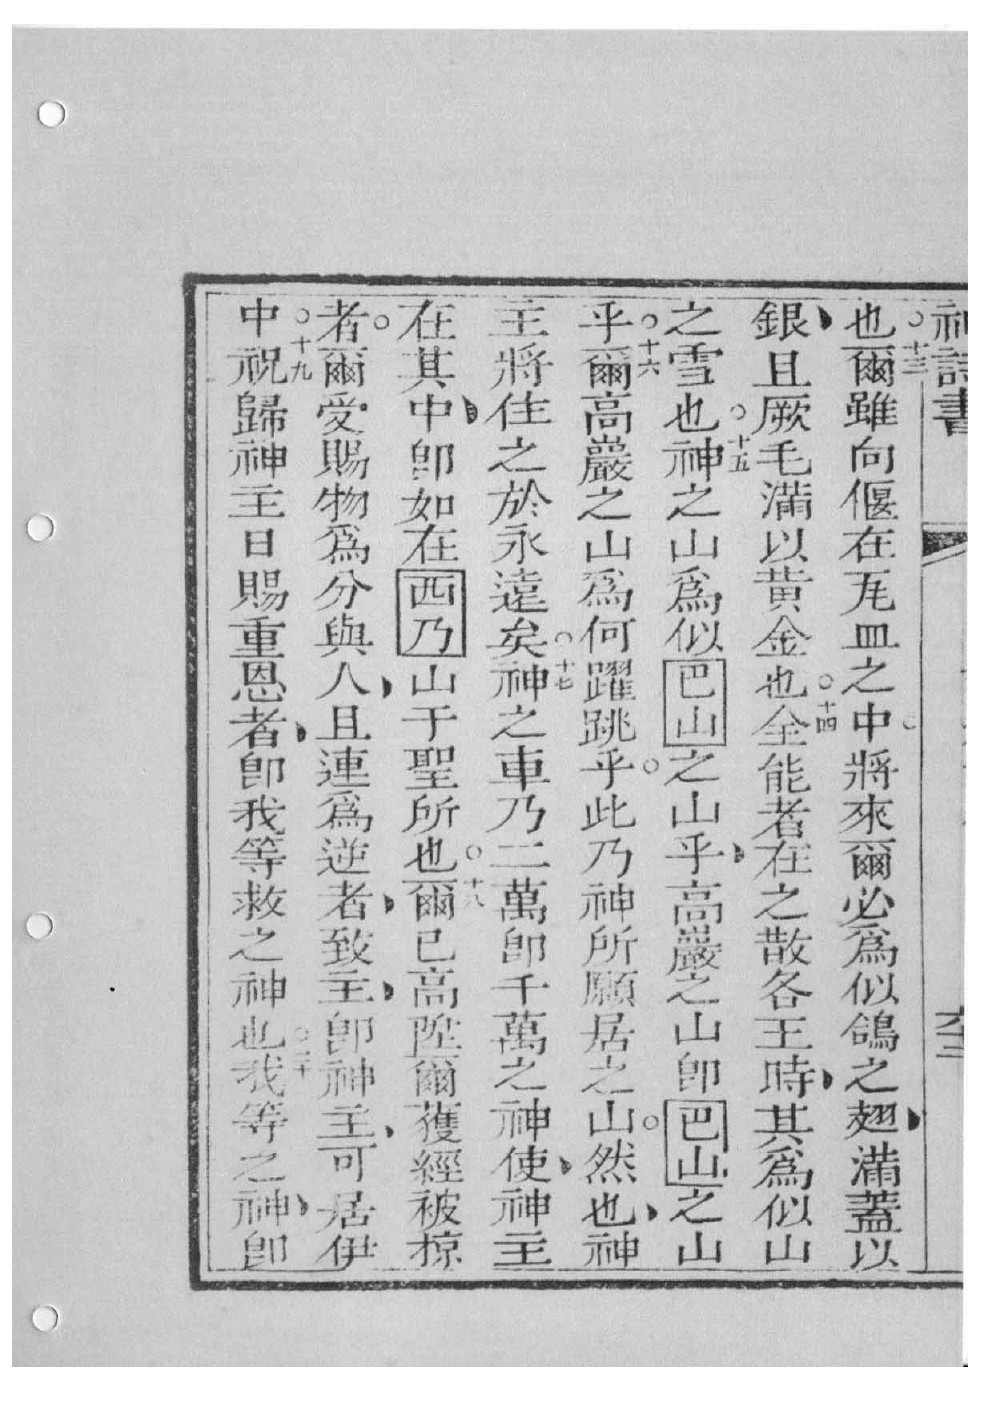 神詩書
也○十三爾雖向偃在瓦皿之中○將來爾必爲似鴿之翅滿蓋以
銀且厥毛滿以黃金也○十四全能者在之散各王時其爲似山
之雪也○十五神之山爲似巴山之山乎高巖之山卽巴山之山
乎○十六爾高巖之山爲何躍跳乎○此乃神所願居之山○然也神
主將住之於永遠矣○十七神之車乃二萬卽千萬之神使神主
在其中卽如在西乃山于聖所也○十八爾已高陞爾獲經被掠
者○爾受賜物爲分與人且連爲逆者致主卽神主可居伊
中○十九祝歸神主日賜重恩者卽我等救之神也○二十我等之神卽